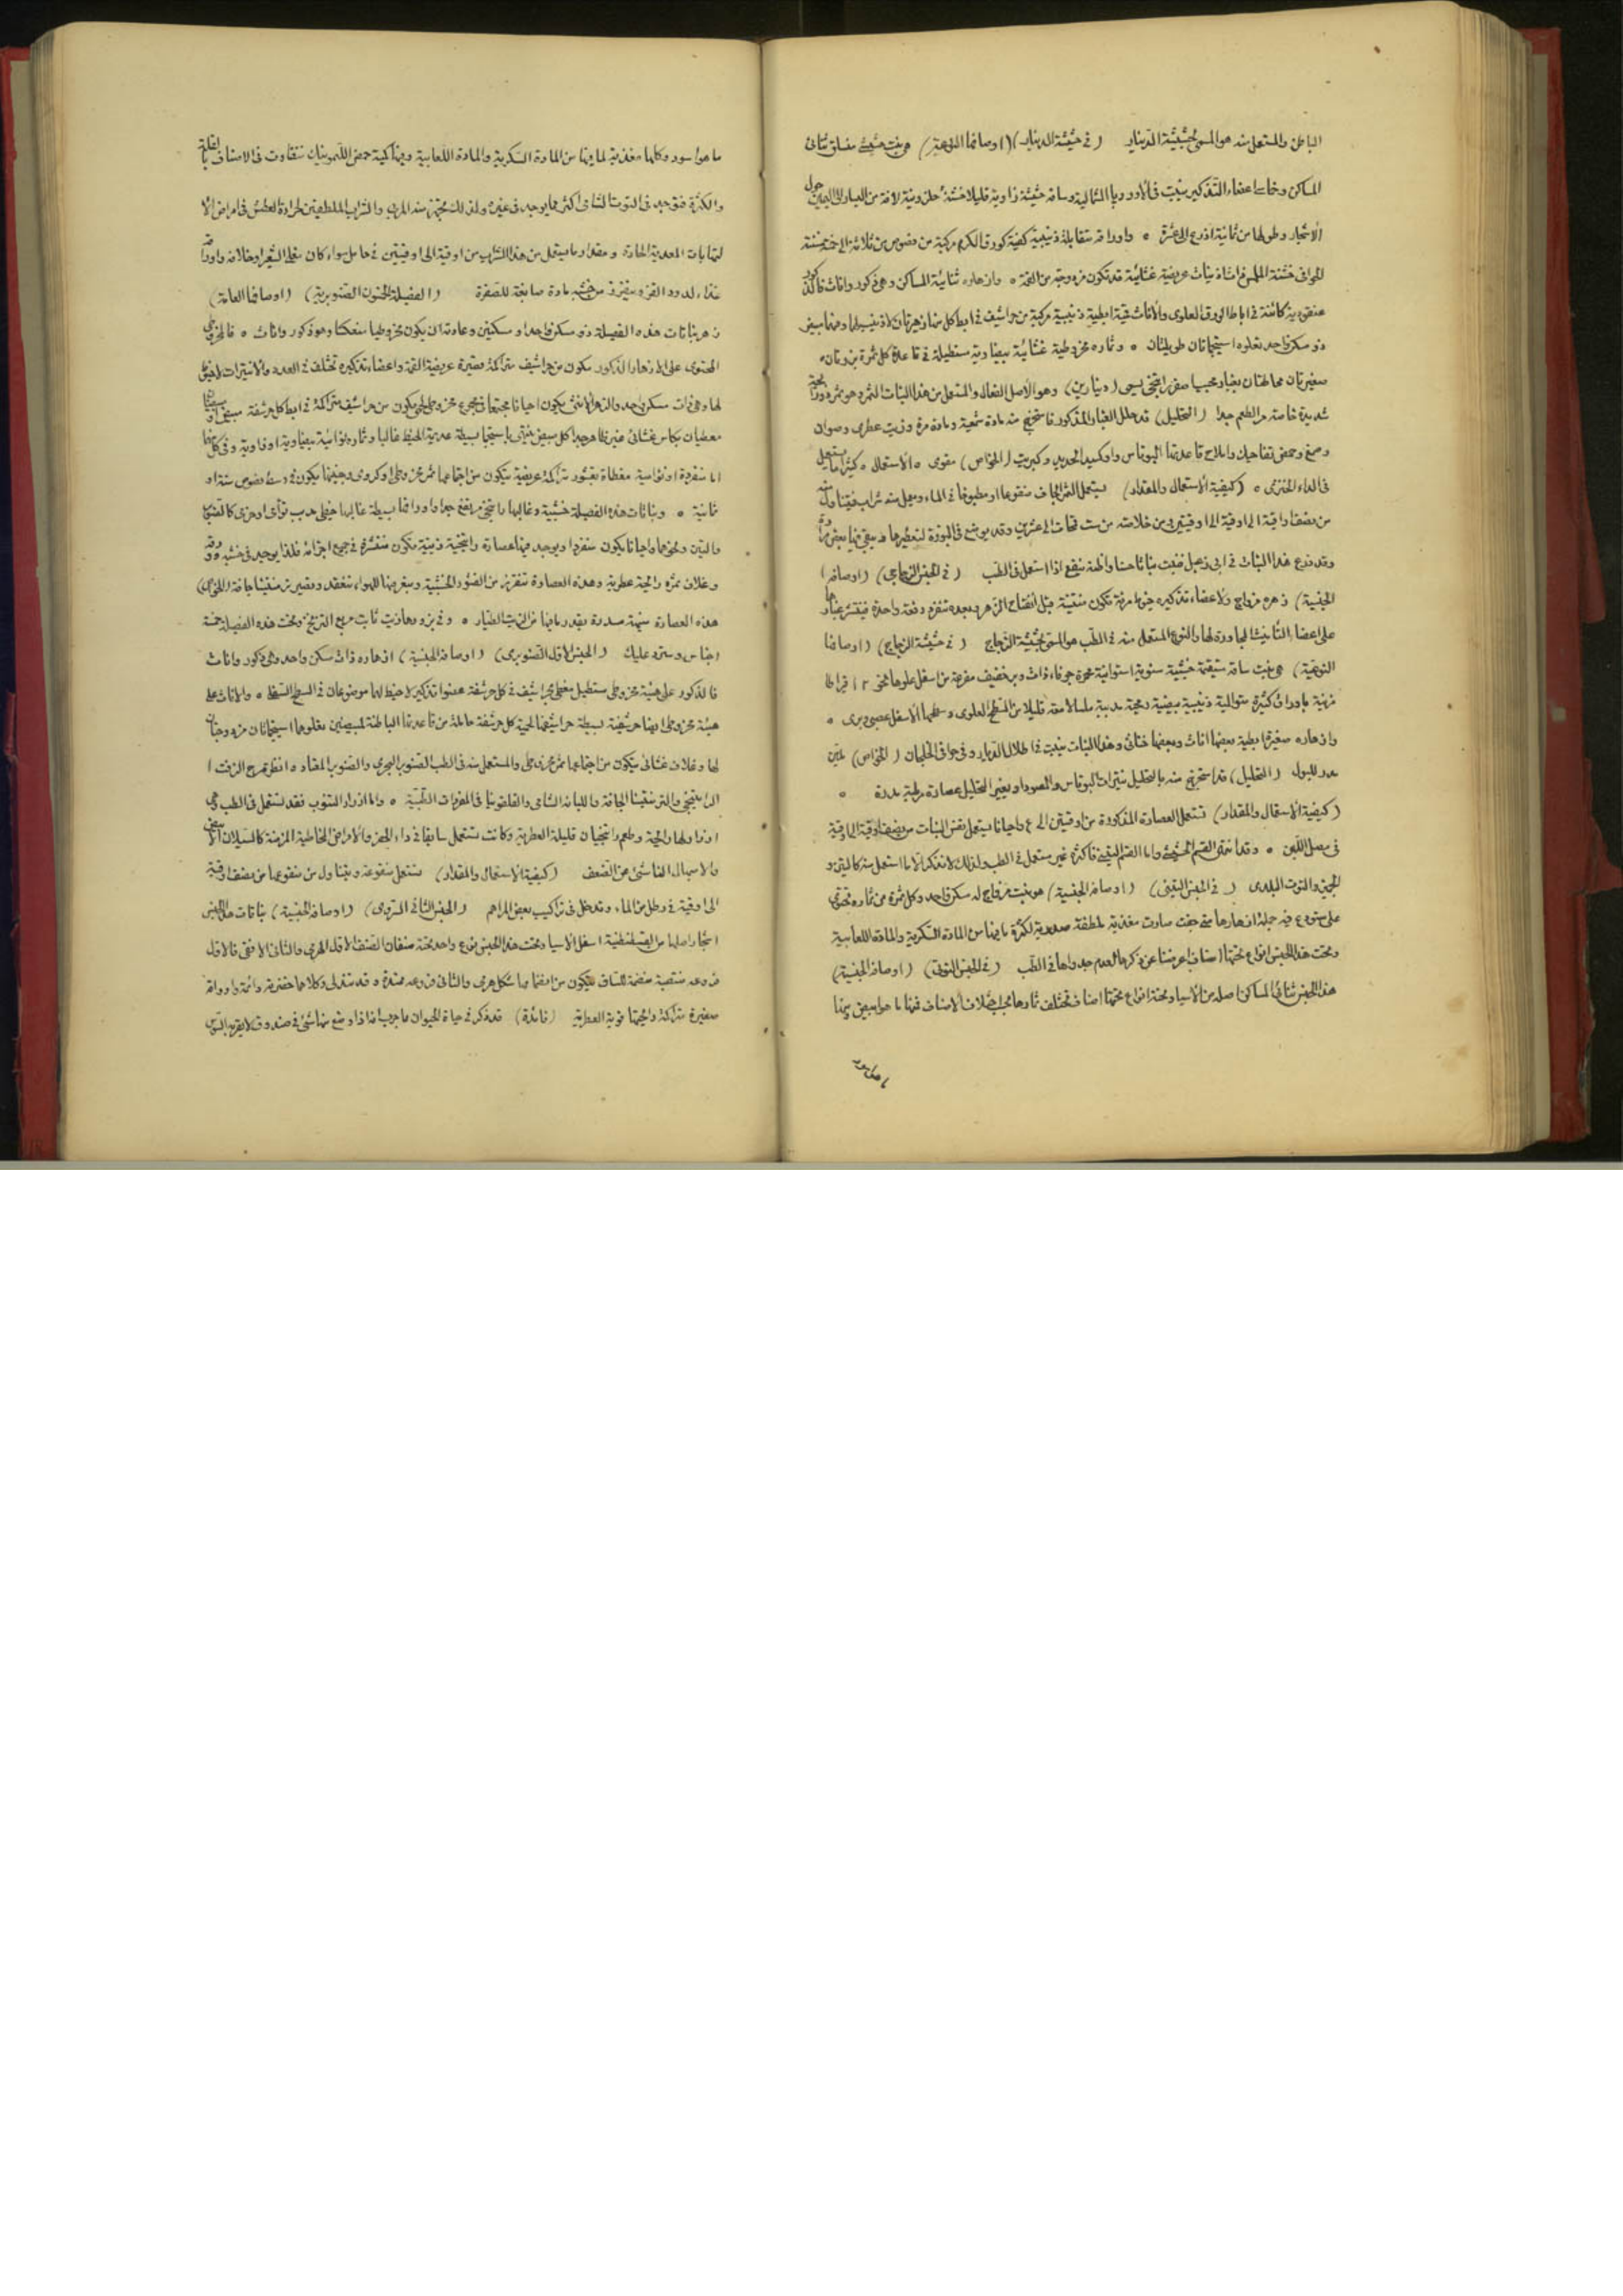 الباطن والمستعمل منه هو المسمى بحشيشة الدينار (في حشيشة الدينار) (اوصافها النوعية) هي نبت حشيشي متسلق ثنائي
المساكن وخماسي اعضاء التذكير ينبت في الاوروبا الشمالية وساقه حشيشة زاوية قليلا خشنة حلزونية لافة من اليسار الى اليمين حول
الاشجار وطولها من ثمانية اذرع الى عشرة ٥ واوراقه متقابلة ذنيبية كفية كورق الكرم مركبة من فصوص من ثلاثة الى خمسة مسننة
الحوافي خشنة الملمس ذات اذينات عريضة غشائية قد تكون مزدوجة من القمة ٥ وازهاره ثنائية المساكن وهي ذكور واناث فالذكور
عنقودية كائنة في اباط الورق العلوى والاناث قمية ابطية ذنيبية مركبة من حراشيف في ابط كل منها زهرتان لا ذنيب لهما ومنها مبيض
ذو سكن واحد يعلوه استيجماتان طويلتان ٥ وثماره مخروطية غشائية بيضاوية مستطيلة في قاعدة كل ثمرة بزرتان
صغيرتان محاطتان بغبار محبب اصفر راتنجي يسمى (دينارين) وهو الاصل الفعال والمستعمل من هذا النبات الثمر وهو ثمر ورائحة
شديدة خاصة مر الطعم جدا (التحليل) قد حلل الغبار المذكور فاستخرج منه مادة شمعية ومادة مرة وزيت عطرى وصوان
وصمغ وحمض تفاحيك واملاح قاعدتها البوتاس واوكسيد الحديد وكبريت (الخواص) مقوى ٥ الاستعمال ٥ كثيرا ما يستعمل
في الداء الخنزيري ٥ (كيفية الاستعمال والمقدار) يستعمل الثمر الجاف منقوعا او مطبوخا في الماء ويعمل منه شراب فيتناول منه
من نصف اوقية الى اوقية الى اوقيتين ومن خلاصته من ست قمحات الى عشرين وقد يوضع في البوزة لتعطيرها
وقد زرع هذا النبات في ابى زعبل فنبت نباتا حسنا واظنه ينفع اذا استعمل في الطب (في الجنس الزجاجي) (اوصافه
الجنسية) زهره مزواج ولاعضاء تذكيره خيوط مرنة تكون منثنية قبل انفتاح الزهر وبعده تنفرد دفعة واحدة فينتشر غبارها
على اعضاء التأنيث المجاورة لها والنوع المستعمل منه في الطب هو المسمى بحشيشة الزجاج (في حشيشة الزجاج) (اوصافها
النوعية) هي نبت ساقه مستقيمة حشيشية سنوية اسطوانية محمرة جوفاء ذات وبر خفيف متفرعة من اسفل علوها نحو ١٢ قيراطا
مزينة باوراق كثيرة متوالية ذنيبية بيضية رمحية مدببة ملساء لامعة قليلا من السطح العلوى وسطحها الاسفل عصبي وبرى ٥
وازهاره صغيرة ابطية بعضها اناث وبعضها خناثى وهذا النبات ينبت في اطلال الديار وفي حوافى الحيطان (الخواص) ملين
مدر للبول (التحليل) قد استخرج منه بالتحليل نيترات البوتاس والصودا وبغير التحليل عصارة مرطبة مدرة ٥
(كيفية الاستعمال والمقدار) تستعمل العصارة المذكورة من اوقيتين الى ٤ واحيانا يستعمل نفس النبات من نصف اوقية الى اوقية
في مصل اللبن ٥ وقد انتهى القسم الحشيشي واما القسم التيني فاكثره غير مستعمل في الطب ولذلك لا نذكر الا ما استعمل منه كالتين و
الجميز والتوت البلدى (في الجنس التينى) (اوصافه الجنسية) هو نبت مزواج له سكن واحد وكل ثمرة من ثماره تحتوى
على مستودع فيه جملة ازهارها متى جفت صارت مغذية ملطفة صدرية لكثرة ما فيها من المادة السكرية والمادة اللعابية
وتحت هذا الجنس انواع تحتها اصناف اعرضنا عن ذكرها لعدم جدواها في الطب (في الجنس التوتى) (اوصافه الجنسية)
هذا الجنس ثنائي المساكن اصله من الاسيا وتحته انواع تحتها اصناف تختلف ثمارها بحسب اختلاف الاصناف فمنها ما هو ابيض ومنها
ما هو اسود وكلها مغذية لما فيها من المادة السكرية والمادة اللعابية وفيها كمية حمض الليمونيك تتفاوت في الاصناف بالقلة
والكثرة فتوجد في التوت الشامى اكثر مما يوجد في غيره ولذلك يجهز منه المربى والشراب الملطفين لحرارة العطش في امراض الا
لتهابات المعدية الحارة ومقدار ما يستعمل من هذا الشراب من اوقية الى اوقيتين في حامل سواء كان مغلى الشعير او خلافه واوراقه
غذاء لدود القز ويفرز من خشبه مادة صابغة للصفرة (الفصيلة الخمسون الصنوبرية) (اوصافها العامة)
زهر نباتات هذه الفصيلة ذو سكن واحد او سكنين وعادته ان يكون مخروطيا منعكسا وهو ذكور واناث ٥ فالمخروطى
المحتوى على الازهار الذكور يتكون من حراشيف متراكمة قصيرة عريضة القمة واعضاء تذكيره تختلف في العدد والانتيرات لا خيوط
لها وهي ذات مسكن واحد والزهر الانثى يكون احيانا مجتمعا في مجموع مخروطي لحمى يتكون من حراشيف متراكمة في ابط كل حرشفة مبيض او مبيضان
مغطيان بكاس غشائى
اما منفردة او نواسية مغطاة بقشور متراكمة عريضة يتكون من اجتماعها ثمر مخروطى او كروى وجنينها يكون في وسط فصوص ستة او
ثمانية ٥ ونباتات هذه الفصيلة خشبية وغالبها راتنجي مرتفع جدا واوراقها بسيطة غالبها خيطى مدبب توأمى او حزمى كالصنوبر
والتين ونحوهما واحيانا يكون منفردا ويوجد فيها عصارة راتنجية زيتية تكون منتشرة في جميع اجزائه فلذا يوجد في خشبه وورقه
وغلاف ثمره رائحة عطرية وهذه العصارة تتفرز من القشور الخشبية وبتعرضها للهواء تنعقد وتصير ترمنتينا جافة (الخواص)
هذه العصارة منبهة مسددة بقدر ما فيها من الزيت الطيار ٥ وفي بزورها زيت ثابت سريع التزنخ وتحت هذه الفصيلة خمسة
اجناس وسترد عليك (الجنس الاول الصنوبرى) (اوصافه الجنسية) ازهاره ذات سكن واحد وهي ذكور واناث
فالذكور على هيئة مخروطى مستطيل مغطى بحراشيف في كل حرشفة عضوا تذكير لا خيط لهما موضوعان في السطح السفلى ٥ والاناث على
هيئة مخروطى ايضا حرشفية بسيطة حراشيفها لحمية كل حرشفة حاملة من قاعدتها الباطنة لمبيضين يعلوهما استيجماتان مزدوجتان
لها وغلاف غشائى يتكون من اجتماعها ثمر مخروطى والمستعمل منه في الطب الصنوبر البحرى والصنوبر المعتاد ٥ انظر شرح الزفت ا
الراتينج والترمنتينا الجافة واللبانه الشامى والقلفونيا في المفردات الطبية ٥ واما ازرار الشوب فقد تستعمل في الطب وهي
ازرار لها رائحة وطعم راتنجيان قليلة العطرية وكانت تستعمل سابقا في داء الحفر والامراض المخاطية المزمنة كالسيلان الابيض
والاسهال الناشئ عن الضعف (كيفية الاستعمال والمقدار) تستعمل منقوعة ويتناول من منقوعها من نصف اوقية
الى اوقية في رطل من الماء وتدخل في تراكيب بعض المراهم (الجنس الثانى السروى) (اوصافه الجنسية) نباتات هذا الجنس
اشجار اصلها من القسطنطينية اسفل الاسيا وتحت هذا الجنس نوع واحد تحته صنفان الصنف الاول الهرمى والثانى الافقى فالاول
فروعه منتصبة منضمة للساق فيتكون من انضمامها شكل هرمى والثانى فروعه ممتدة وقد تتدلى وكلاهما خضرته دائمة واوراقه
صغيرة متراكمة رائحتها قوية العطرية (فائدة) قد ذكر في حياة الحيوان ما جرب فاذا وضع منها شئ في صندوق لا يقربه السوس